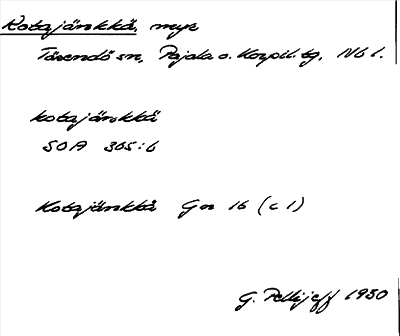 Kotajänkkä, myr
Tärendö sn, Pajala o. Korpil. tg, Nb l.
kotajänkkä
SOA 305:6
Kotajänkkä Gn 16 (c 1)
G. Pellijeff 1950